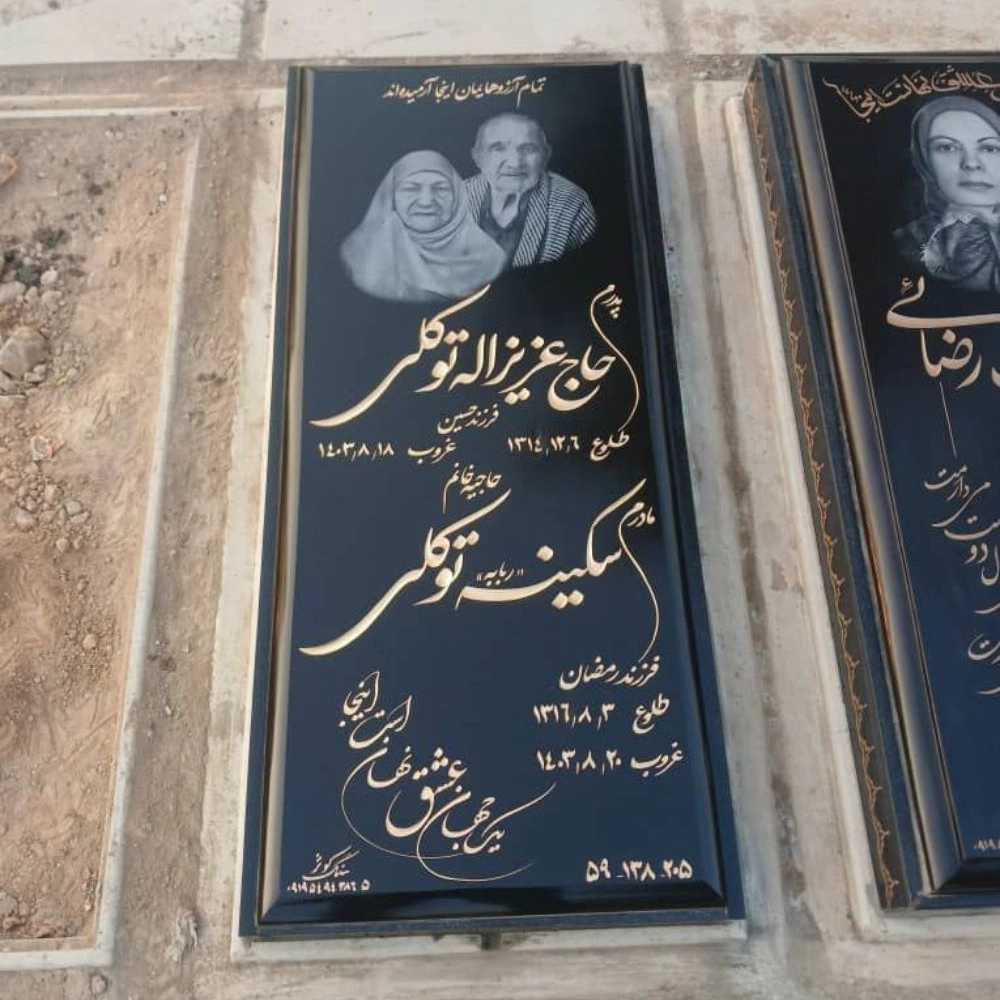 تمام آرزوهایمان اینجا آرمیده‌اند
پدرم
حاج عزیزاله توکلی
فرزند حسین
طلوع ۱۳۱۴٫۱۲٫۶ غروب ۱۴۰۳٫۸٫۱۸
حاجیه خانم
مادرم
سکینه «ربابه» توکلی
فرزند رمضان
طلوع ۱۳۱۶٫۸٫۳
غروب ۱۴۰۳٫۸٫۲۰
یک جهان عشق نهان است اینجا
۵۹-۱۳۸-۲۰۵
سنگ کوثر
۰۹۱۹۵۴۹۴۳۸۶۵
عشق نهانست اینجا
رضائی
می‌دارمت
دو